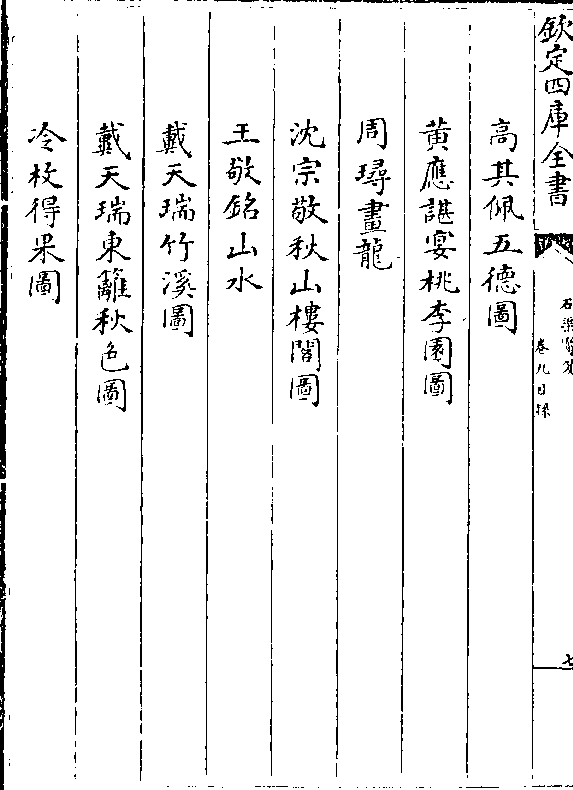 欽定四庫全書
卷九目錄
七
高其佩五德圖
黃應諶宴桃李園圖
周璕畫龍
沈宗敬秋山樓閣圖
王敬銘山水
戴天瑞竹溪圖
戴天瑞東籬秋色圖
冷枚得果圖